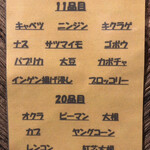 11品目
キャベツ ニンジン キクラゲ
ナス サツマイモ ゴボウ
パプリカ 大豆 カボチャ
インゲン揚げ浸し ブロッコリー
20品目
オクラ ピーマン 大根
カブ ヤングコーン
レンコン 紅芯大根